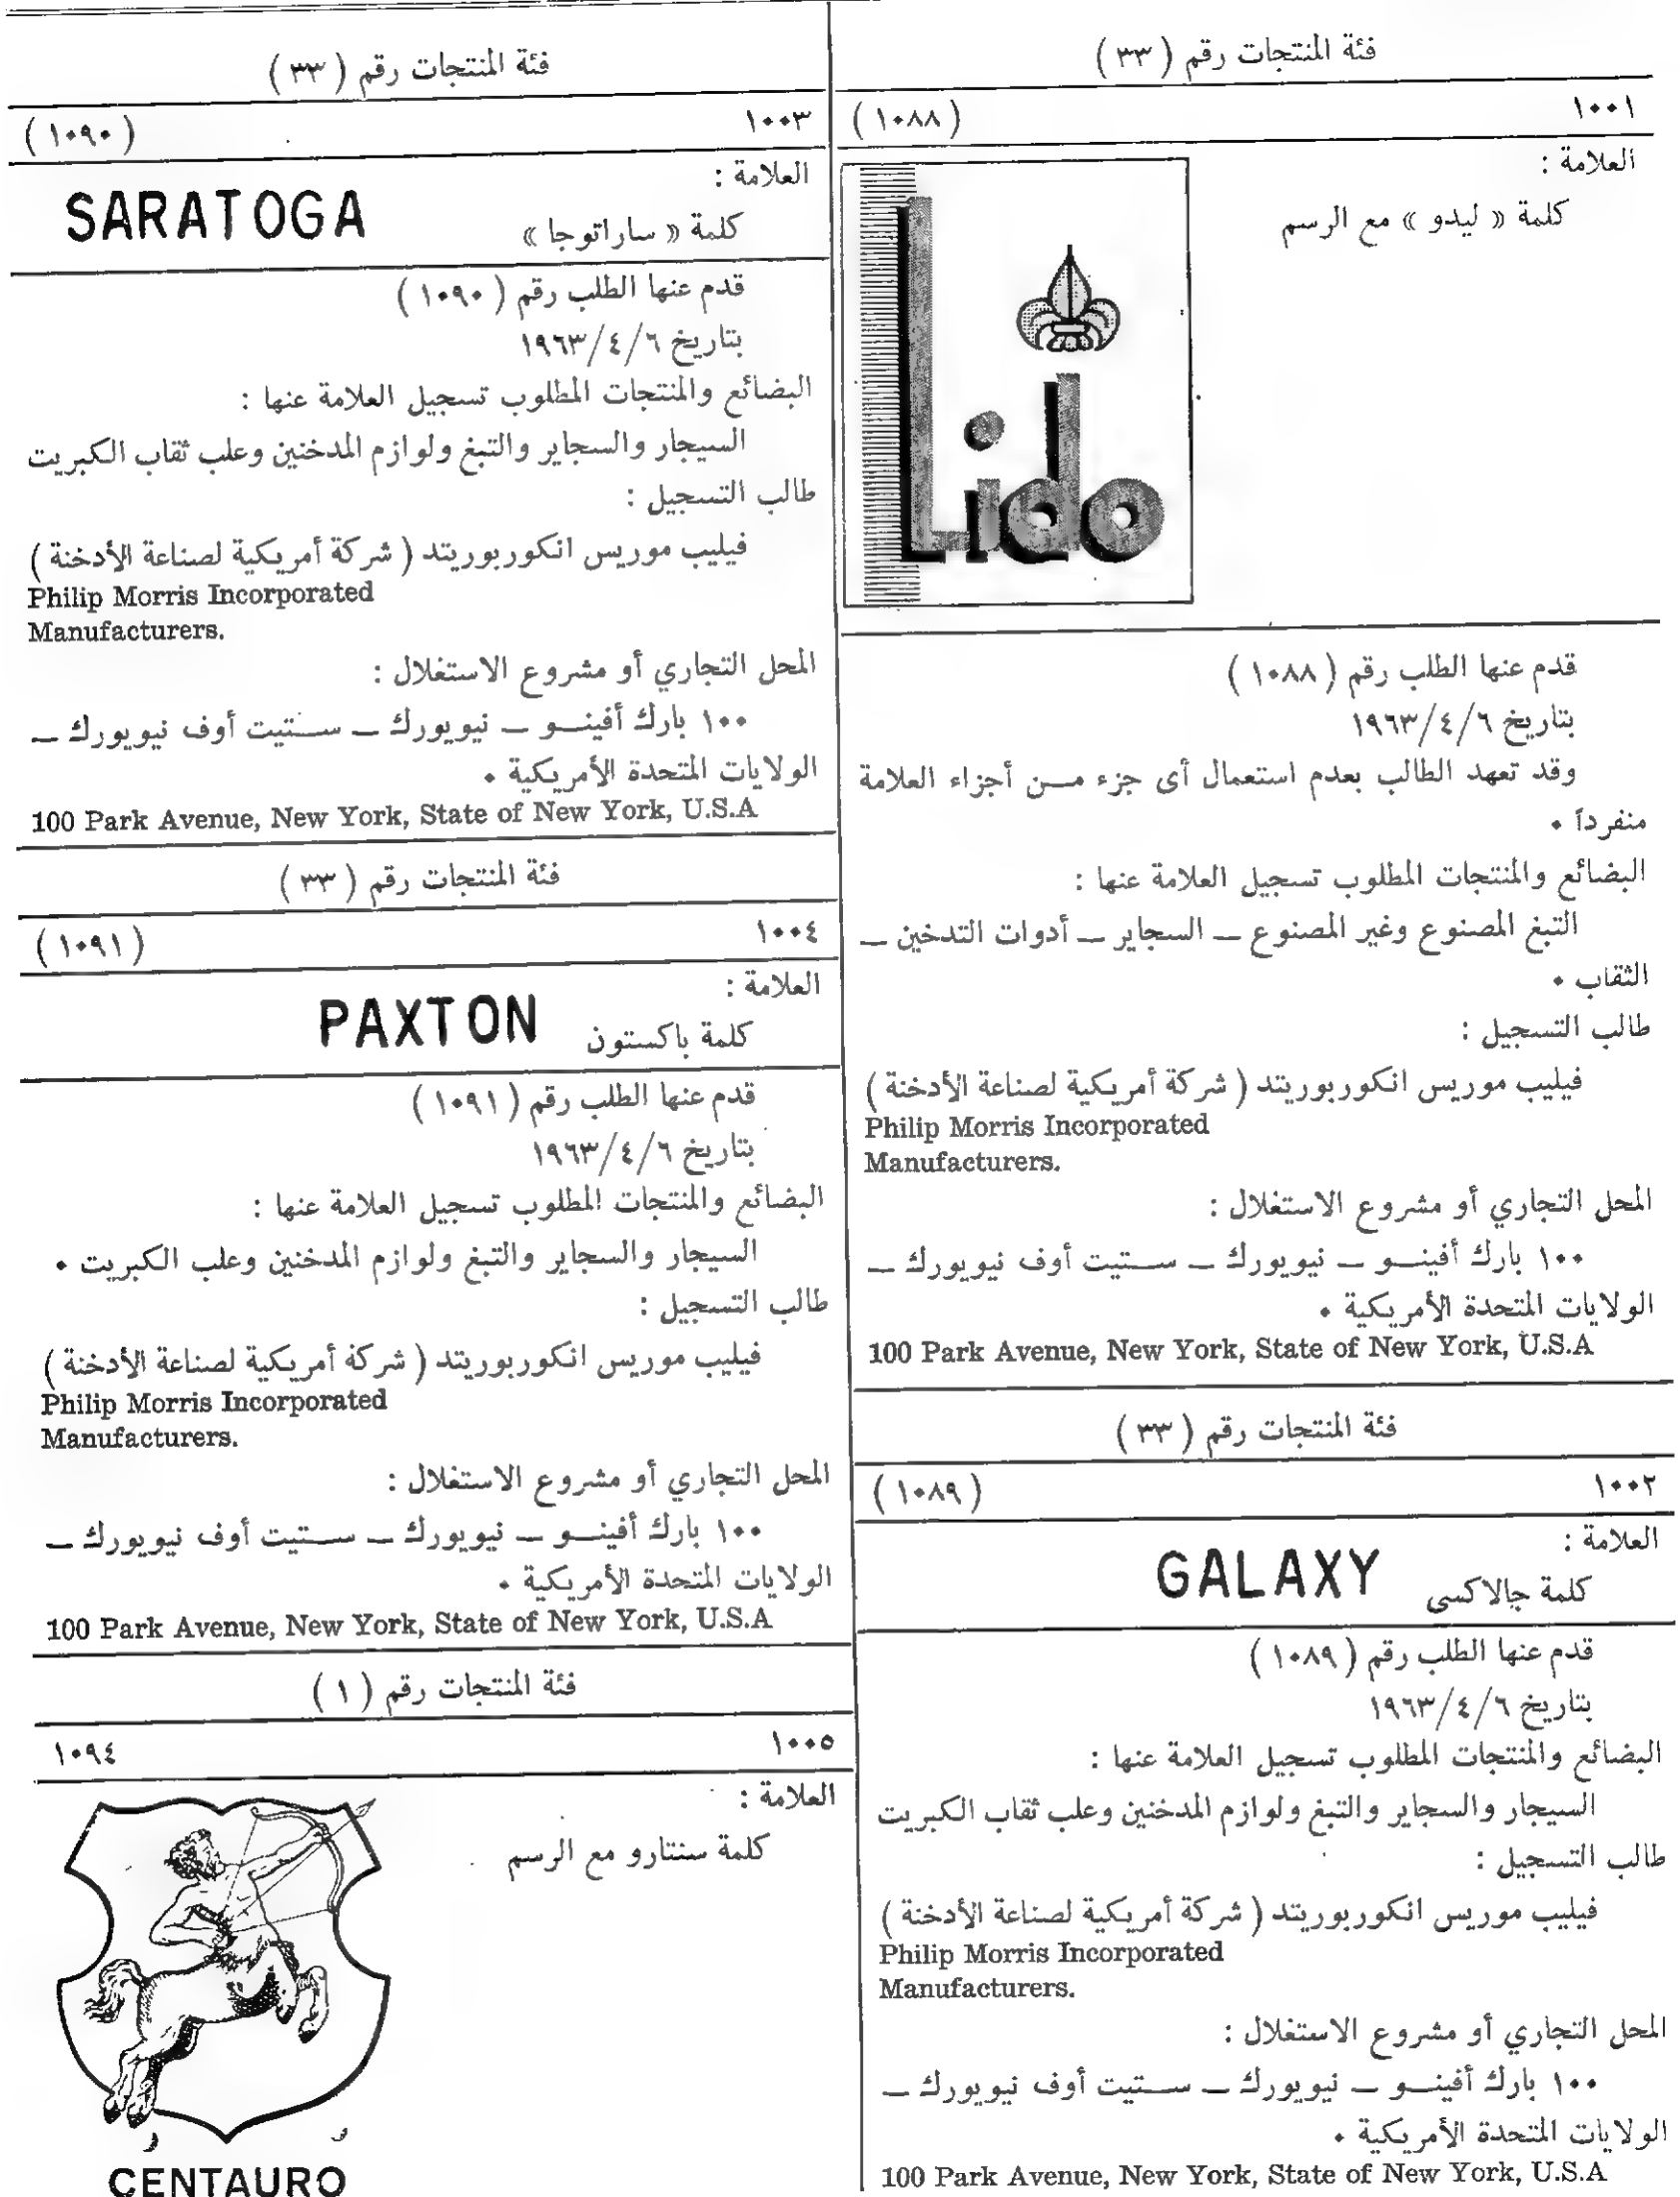 فئة المنتجات رقم ( ٣٣ )
١٠٠١ ( ١٠٨٨ )
العلامة :
كلمة « ليدو » مع الرسم
Lido
قدم عنها الطلب رقم ( ١٠٨٨ )
بتاريخ ١٩٦٣/٤/٦
وقد تعهد الطالب بعدم استعمال أى جزء مـن أجزاء العلامة
منفرداً ٠
البضائع والمنتجات المطلوب تسجيل العلامة عنها :
التبغ المصنوع وغير المصنوع ــ السجاير ــ أدوات التدخين ــ
الثقاب ٠
طالب التسجيل :
فيليب موريس انكوربوريتد ( شركة أمريكية لصناعة الأدخنة )
Philip Morris Incorporated
Manufacturers.
المحل التجاري أو مشروع الاستغلال :
١٠٠ بارك أفينــو ــ نيويورك ــ ســتيت أوف نيويورك ــ
الولايات المتحدة الأمريكية ٠
100 Park Avenue, New York, State of New York, U.S.A
فئة المنتجات رقم ( ٣٣ )
١٠٠٢ ( ١٠٨٩ )
العلامة :
كلمة جالاكسى GALAXY
قدم عنها الطلب رقم ( ١٠٨٩ )
بتاريخ ١٩٦٣/٤/٦
البضائع والمنتجات المطلوب تسجيل العلامة عنها :
السيجار والسجاير والتبغ ولوازم المدخنين وعلب ثقاب الكبريت
طالب التسجيل :
فيليب موريس انكوربوريتد ( شركة أمريكية لصناعة الأدخنة )
Philip Morris Incorporated
Manufacturers.
المحل التجاري أو مشروع الاستغلال :
١٠٠ بارك أفينــو ــ نيويورك ــ ســتيت أوف نيويورك ــ
الولايات المتحدة الأمريكية ٠
100 Park Avenue, New York, State of New York, U.S.A
فئة المنتجات رقم ( ٣٣ )
١٠٠٣ ( ١٠٩٠ )
العلامة :
كلمة « ساراتوجا » SARATOGA
قدم عنها الطلب رقم ( ١٠٩٠ )
بتاريخ ١٩٦٣/٤/٦
البضائع والمنتجات المطلوب تسجيل العلامة عنها :
السيجار والسجاير والتبغ ولوازم المدخنين وعلب ثقاب الكبريت
طالب التسجيل :
فيليب موريس انكوربوريتد ( شركة أمريكية لصناعة الأدخنة )
Philip Morris Incorporated
Manufacturers.
المحل التجاري أو مشروع الاستغلال :
١٠٠ بارك أفينــو ــ نيويورك ــ ســتيت أوف نيويورك ــ
الولايات المتحدة الأمريكية ٠
100 Park Avenue, New York, State of New York, U.S.A
فئة المنتجات رقم ( ٣٣ )
١٠٠٤ ( ١٠٩١ )
العلامة :
كلمة باكستون PAXTON
قدم عنها الطلب رقم ( ١٠٩١ )
بتاريخ ١٩٦٣/٤/٦
البضائع والمنتجات المطلوب تسجيل العلامة عنها :
السيجار والسجاير والتبغ ولوازم المدخنين وعلب الكبريت ٠
طالب التسجيل :
فيليب موريس انكوربوريتد ( شركة أمريكية لصناعة الأدخنة )
Philip Morris Incorporated
Manufacturers.
المحل التجاري أو مشروع الاستغلال :
١٠٠ بارك أفينــو ــ نيويورك ــ ســتيت أوف نيويورك ــ
الولايات المتحدة الأمريكية ٠
100 Park Avenue, New York, State of New York, U.S.A
فئة المنتجات رقم ( ١ )
١٠٠٥ ١٠٩٤
العلامة :
كلمة سنتارو مع الرسم
CENTAURO